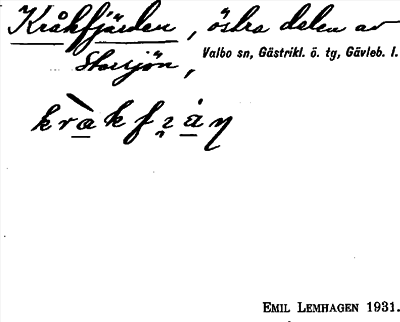 Kråkfjärden, östra delen av
Storsjön, Valbo sn, Gästrikl. ö. tg, Gävleb. l.
EMIL LEMHAGEN 1931.